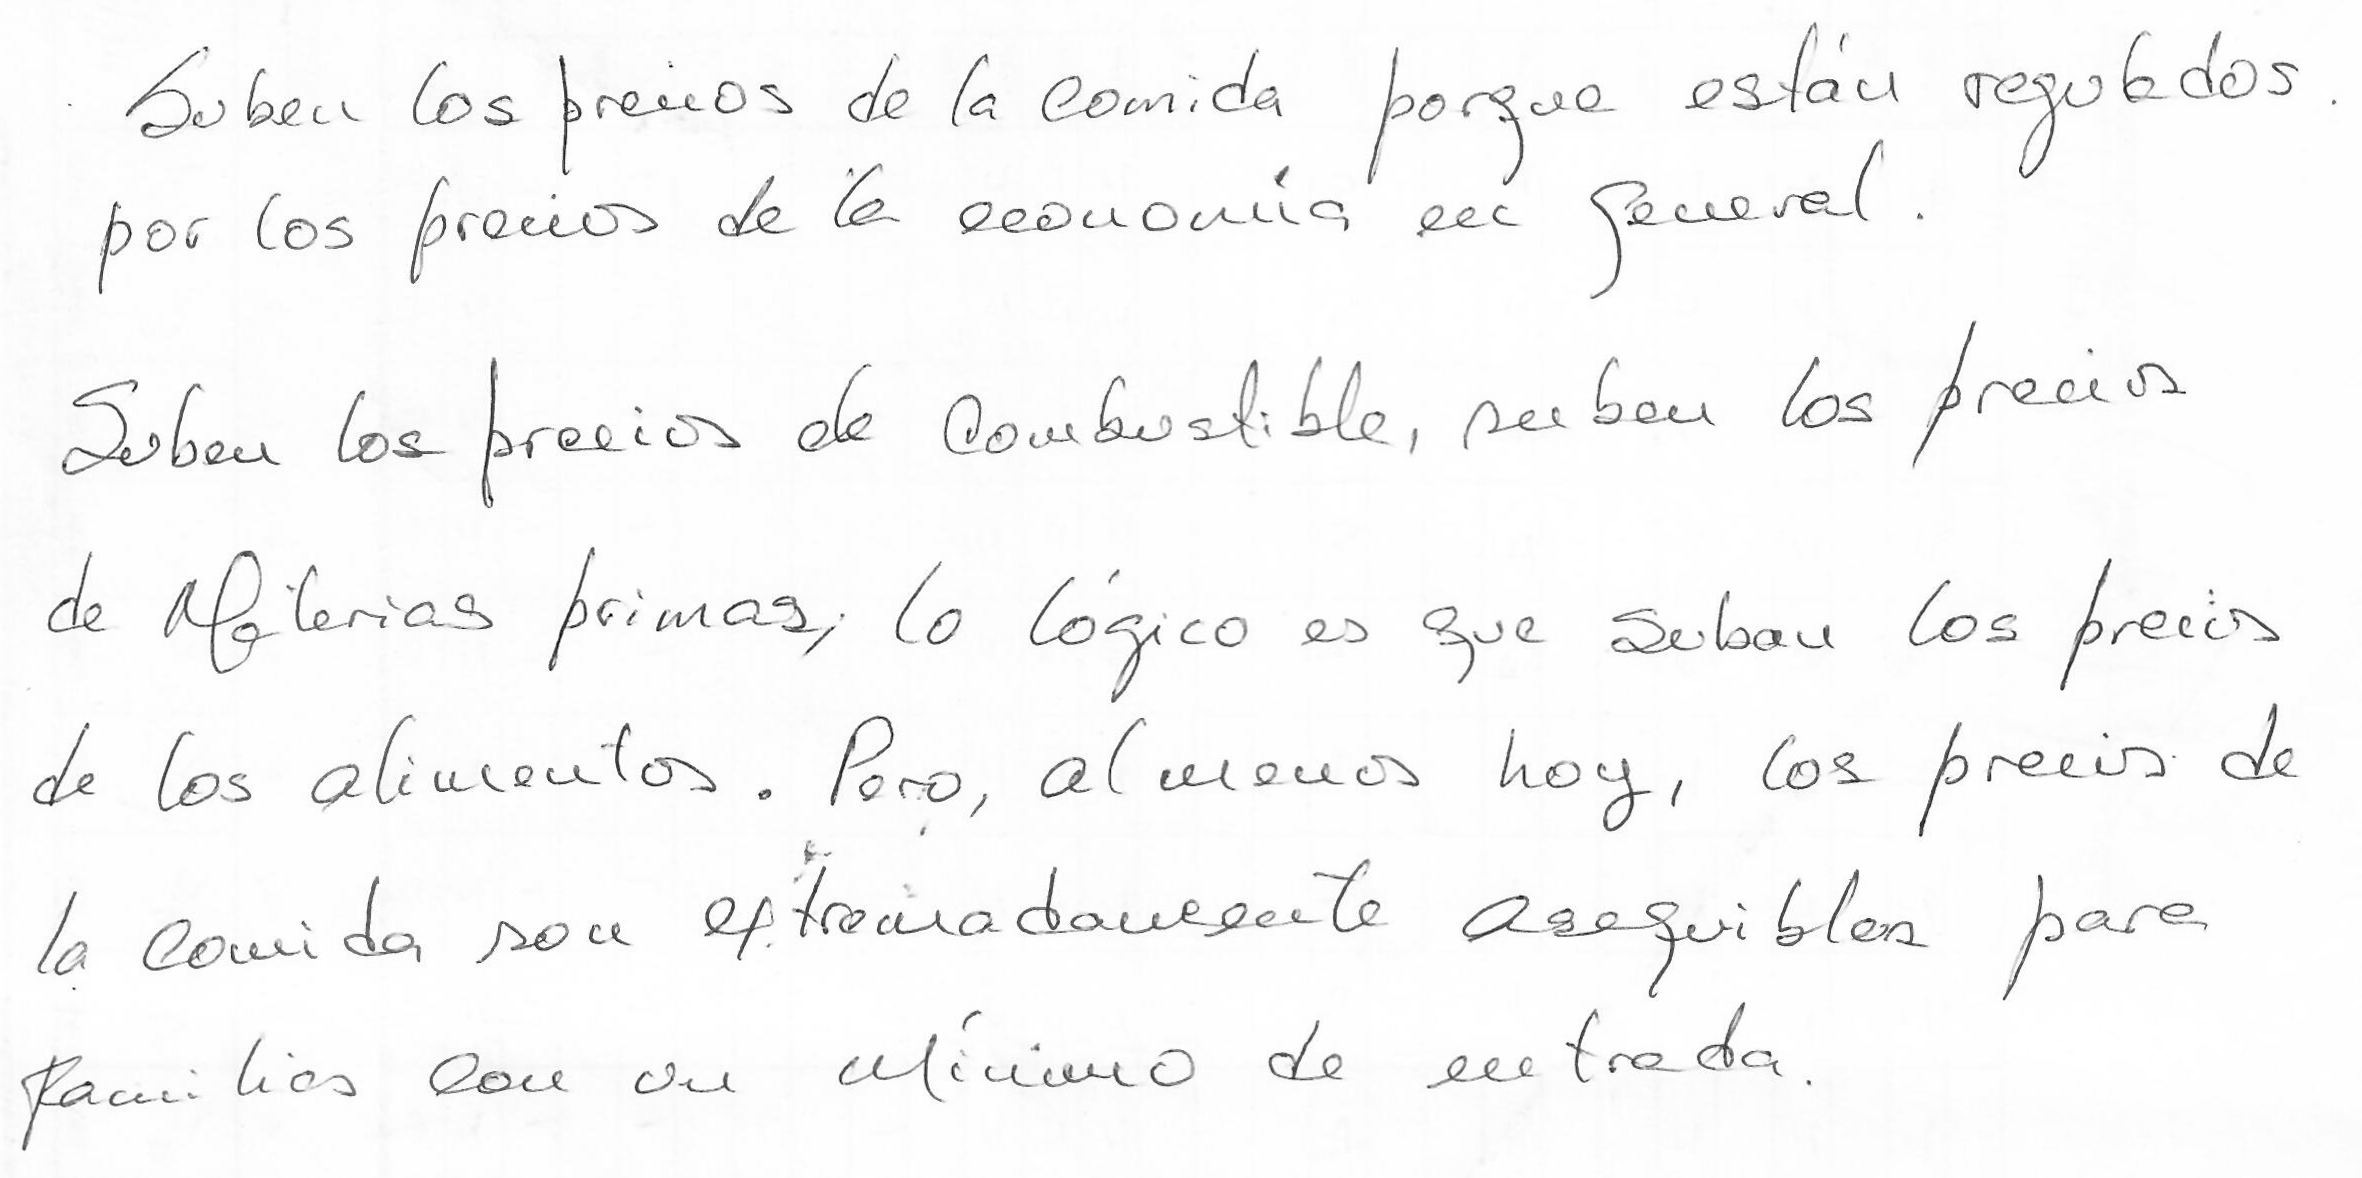 Suben los precios de la comida porque están regulados.
por los precios de la economía en general.
Suben los precios de combustible, suben los precios
de Materias primas, lo lógico es que suban los precios
de los alimentos. Pero, al menos hoy, los precios de
la comida son extremadamente asequibles para
familias con un mínimo de entrada.